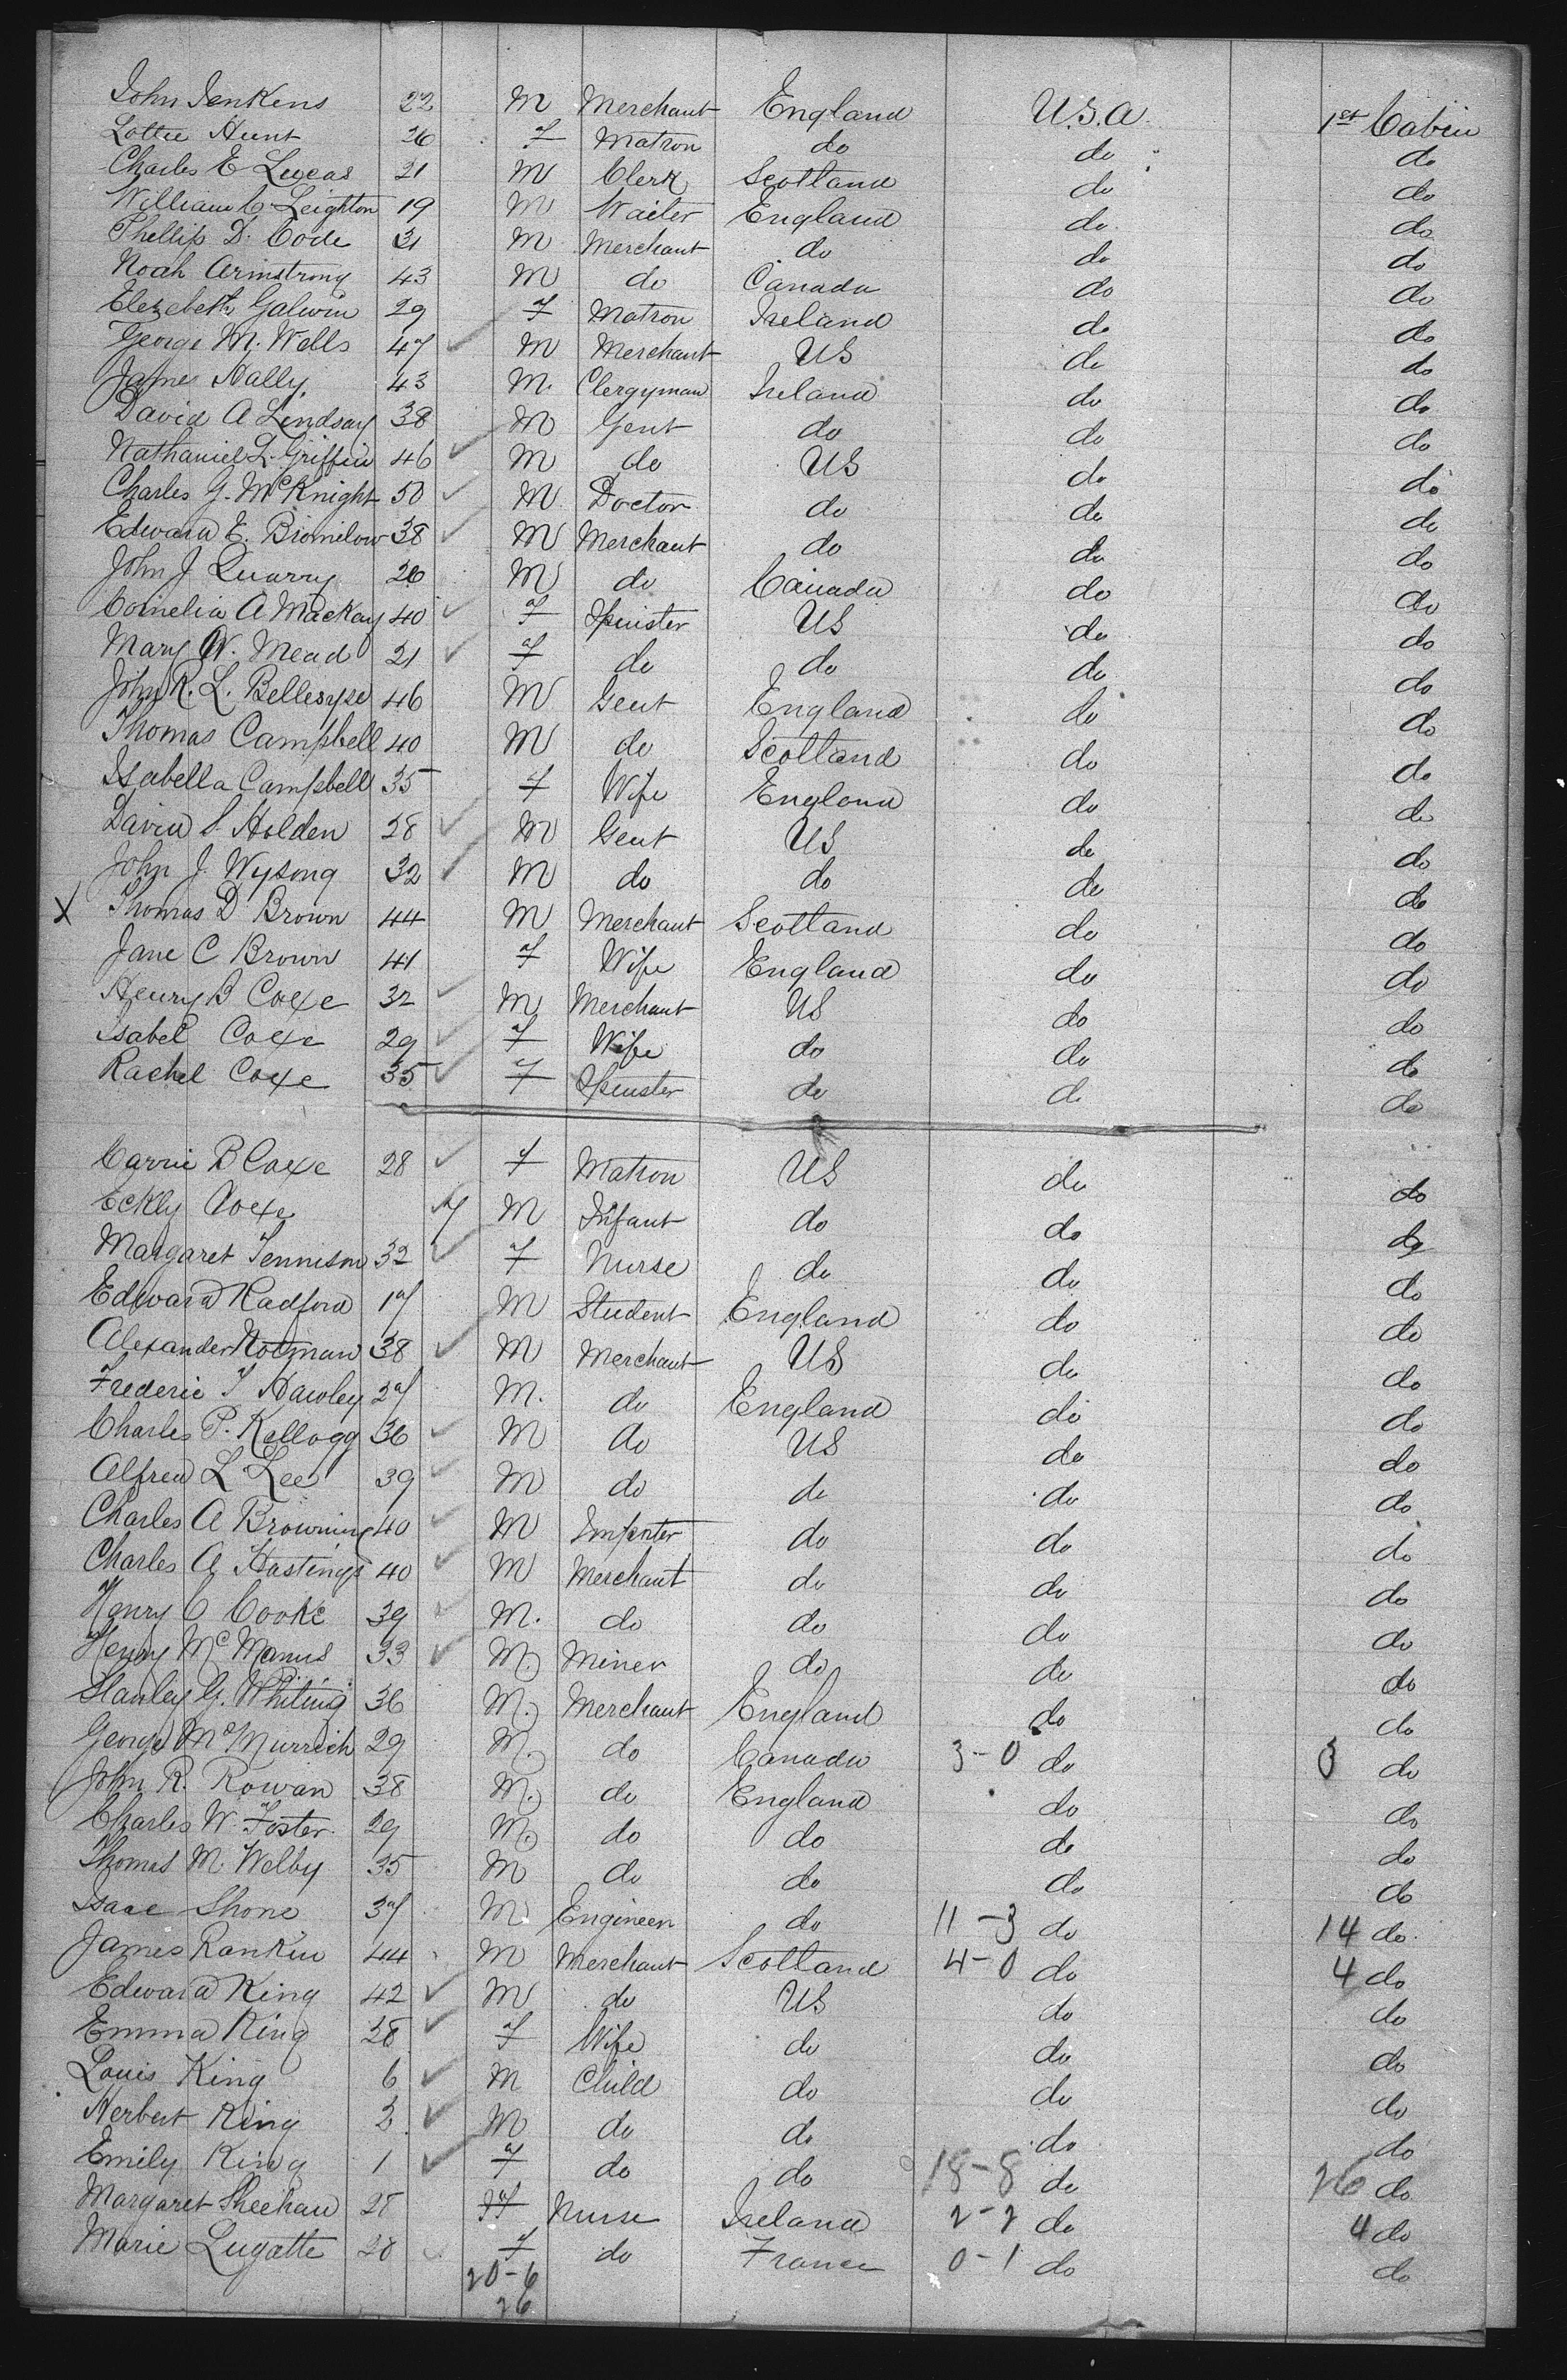 John Jenkens 22 M Merchant England U.S.A. 1st Cabin
Lottie Hunt 26 F Matron do do do
Charles E Lucas 21 M Clerk Scotland do do
William C Leighton 19 M Waiter England do do
Phellip D. Code 31 M Merchant do do do
Noah Armstrong 43 M do Canada do do
Elezebeth Galwin 29 F Matron Ireland do do
George M. Wells 47 M Merchant US do do
James Nally 43 M. Clergyman Ireland do do
David A Lindsay 38 M Gent do do do
Nathaniel L. Griffin 46 M do US do do
Charles G. McKnight 50 M Doctor do do do
Edward E. Bromilow 38 M Merchant do do do
John J Quarry 26 M do Canada do do
Cornelia A Mackay 40 F Spinster US do do
Mary W. Mead 21 F do do do do
John R. L. 46 M Gent England do do
Thomas Campbell 40 M do Scotland do do
Isabella Campbell 35 F Wife England do do
David S Holden 28 M Gent US do do
John J. Wysong 32 M do do do do
X Thomas D Brown 44 M Merchant Scotland do do
Jane C Brown 41 F Wife England do do
Henry B Coxe 32 M Merchant US do do
Isabel Coxe 29 F Wife do do do
Rachel Coxe 35 F Spinster do do do
Carrie B Coxe 28 F Matron US do do
Eckly Coxe 7 M Infant do do do
Margaret Tennison 32 F Nurse do do do
Edward Radford 17 M Student England do do
Alexander Notman 38 M Merchant US do do
Frederic T Hawley 27 M. do England do do
Charles P. Kellogg 36 M do US do do
Alfred L Lee 39 M do do do do
Charles A Browning 40 M Importer do do do
Charles A Hastings 40 M Merchant do do do
Henry C Cooke 39 M. do do do do
Henry McManus 33 M. Miner do do do
Stanley G. Whiting 36 M. Merchant England do do
George McMurrich 29 M. do Canada 3-0 do 3 do
John R. Rowan 38 M. do England do do
Charles W. Foster. 29 M. do do do do
Thomas M. Welby 35 M do do do do
Isaac Shone 37 M. Engineer do 11-3 do 14 do
James Rankin 44 M Merchant Scotland 4-0 do 4 do
Edward King 42 M do US do do
Emma King 28 F Wife do do do
Louis King 6 M Child do do do
Herbert King 2 M do do do do
Emily King 1 F do do 18-8 do 26 do
Margaret Sheehan 28 F Nurse Ireland 2-2 do 4 do
Marie Lugatte 28 F do France 0-1 do do
20-6
26